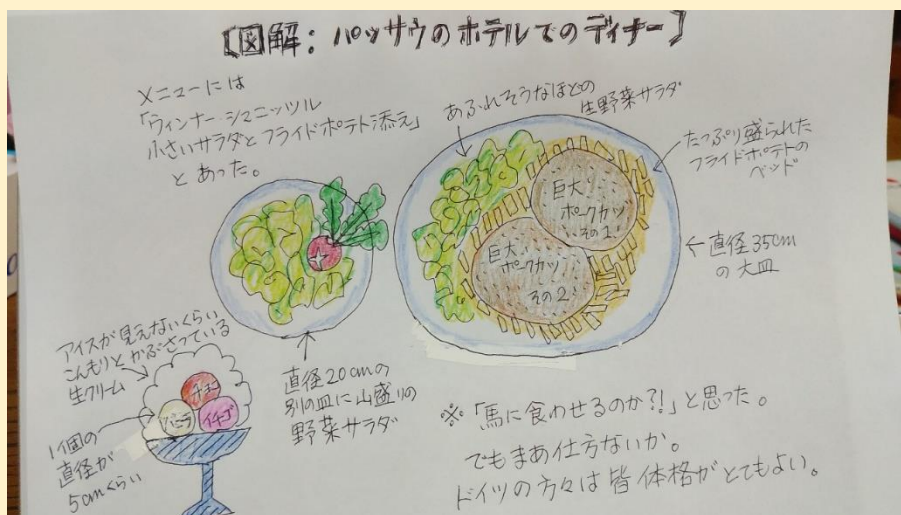 【図解：パッサウのホテルでのディナー】
メニューには
「ウィンナー・シュニッツル
小さいサラダとフライドポテト添え」
とあった。
あふれそうなほどの
生野菜サラダ
たっぷり盛られた
フライドポテトの
ベッド
巨大
ポークカツ
その1
巨大
ポークカツ
その2
←直径35cm
の大皿
アイスが見えないくらい
こんもりとかぶさっている
生クリーム
チョコ
バニラ
イチゴ
1個の
直径が
5cmくらい
直径20cmの
別の皿に山盛りの
野菜サラダ
※「馬に食わせるのか?!」と思った。
でもまあ仕方ないか。
ドイツの方々は皆体格がとてもよい。